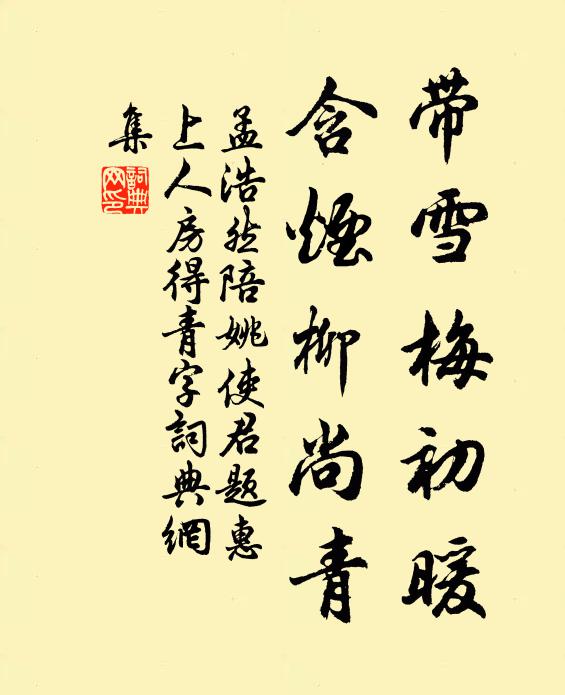 带雪梅初暖
含煙柳尚青
孟浩然陪姚使君题惠
上人房得青字詞典網
集
詞典
网印